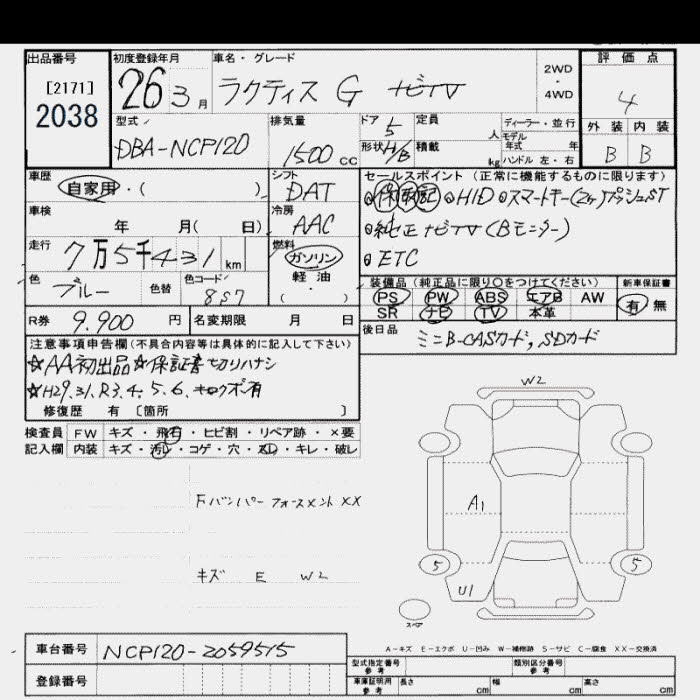 出品番号
[2171]
2038
初度登録年月
26 3月
車名・グレード
ラクティス G ナビTV
2WD
・
4WD
評価点
4
外装 内装
B B
型式
DBA-NCP120
排気量
1500 CC
ドア 5
形状 H/B
定員 人
積載 kg
ディーラー・並行
モデル年式 年
ハンドル 左・右
車歴
自家用・( )
シフト
DAT
セールスポイント (正常に機能するものに限ります)
保取記 HID スマートキー(2ケ)プッシュST
純正ナビTV(Bモニター)
ETC
車検
年 月( 日)
冷房
AAC
走行
7万5千431 km
燃料
ガソリン
軽・油
( )
色 ブルー
色替
色コード 8S7
装備品 (純正品に限り○をつけてください)
PS PW ABS エアB AW
SR ナビ TV 本革
新車保証書
有 無
R券 9.900 円
名変期限 月 日
後日品
ミニB-CASカード, SDカード
注意事項申告欄(不具合内容等は具体的に記入して下さい)
☆AA初出品 ☆保証書切リハナシ
☆H29.31.R3.4.5.6.キロクボ有
修復歴 有 [箇所 ]
検査員 FW キズ・飛石・ヒビ割・リペア跡・×要
記入欄 内装 キズ・汚レ・コゲ・穴・スレ・キレ・破レ
Fバンパーフォースメント XX
キズ E W2
W2
A1
5 5
U1
スペア
A-キズ E-エクボ U-凹み W-補修跡 S-サビ C-腐食 XX-交換済
車台番号 NCP120-2059515
登録番号
型式指定番号 参考
類別区分番号 参考
車庫証明用 参考
長さ cm 幅 cm 高さ cm